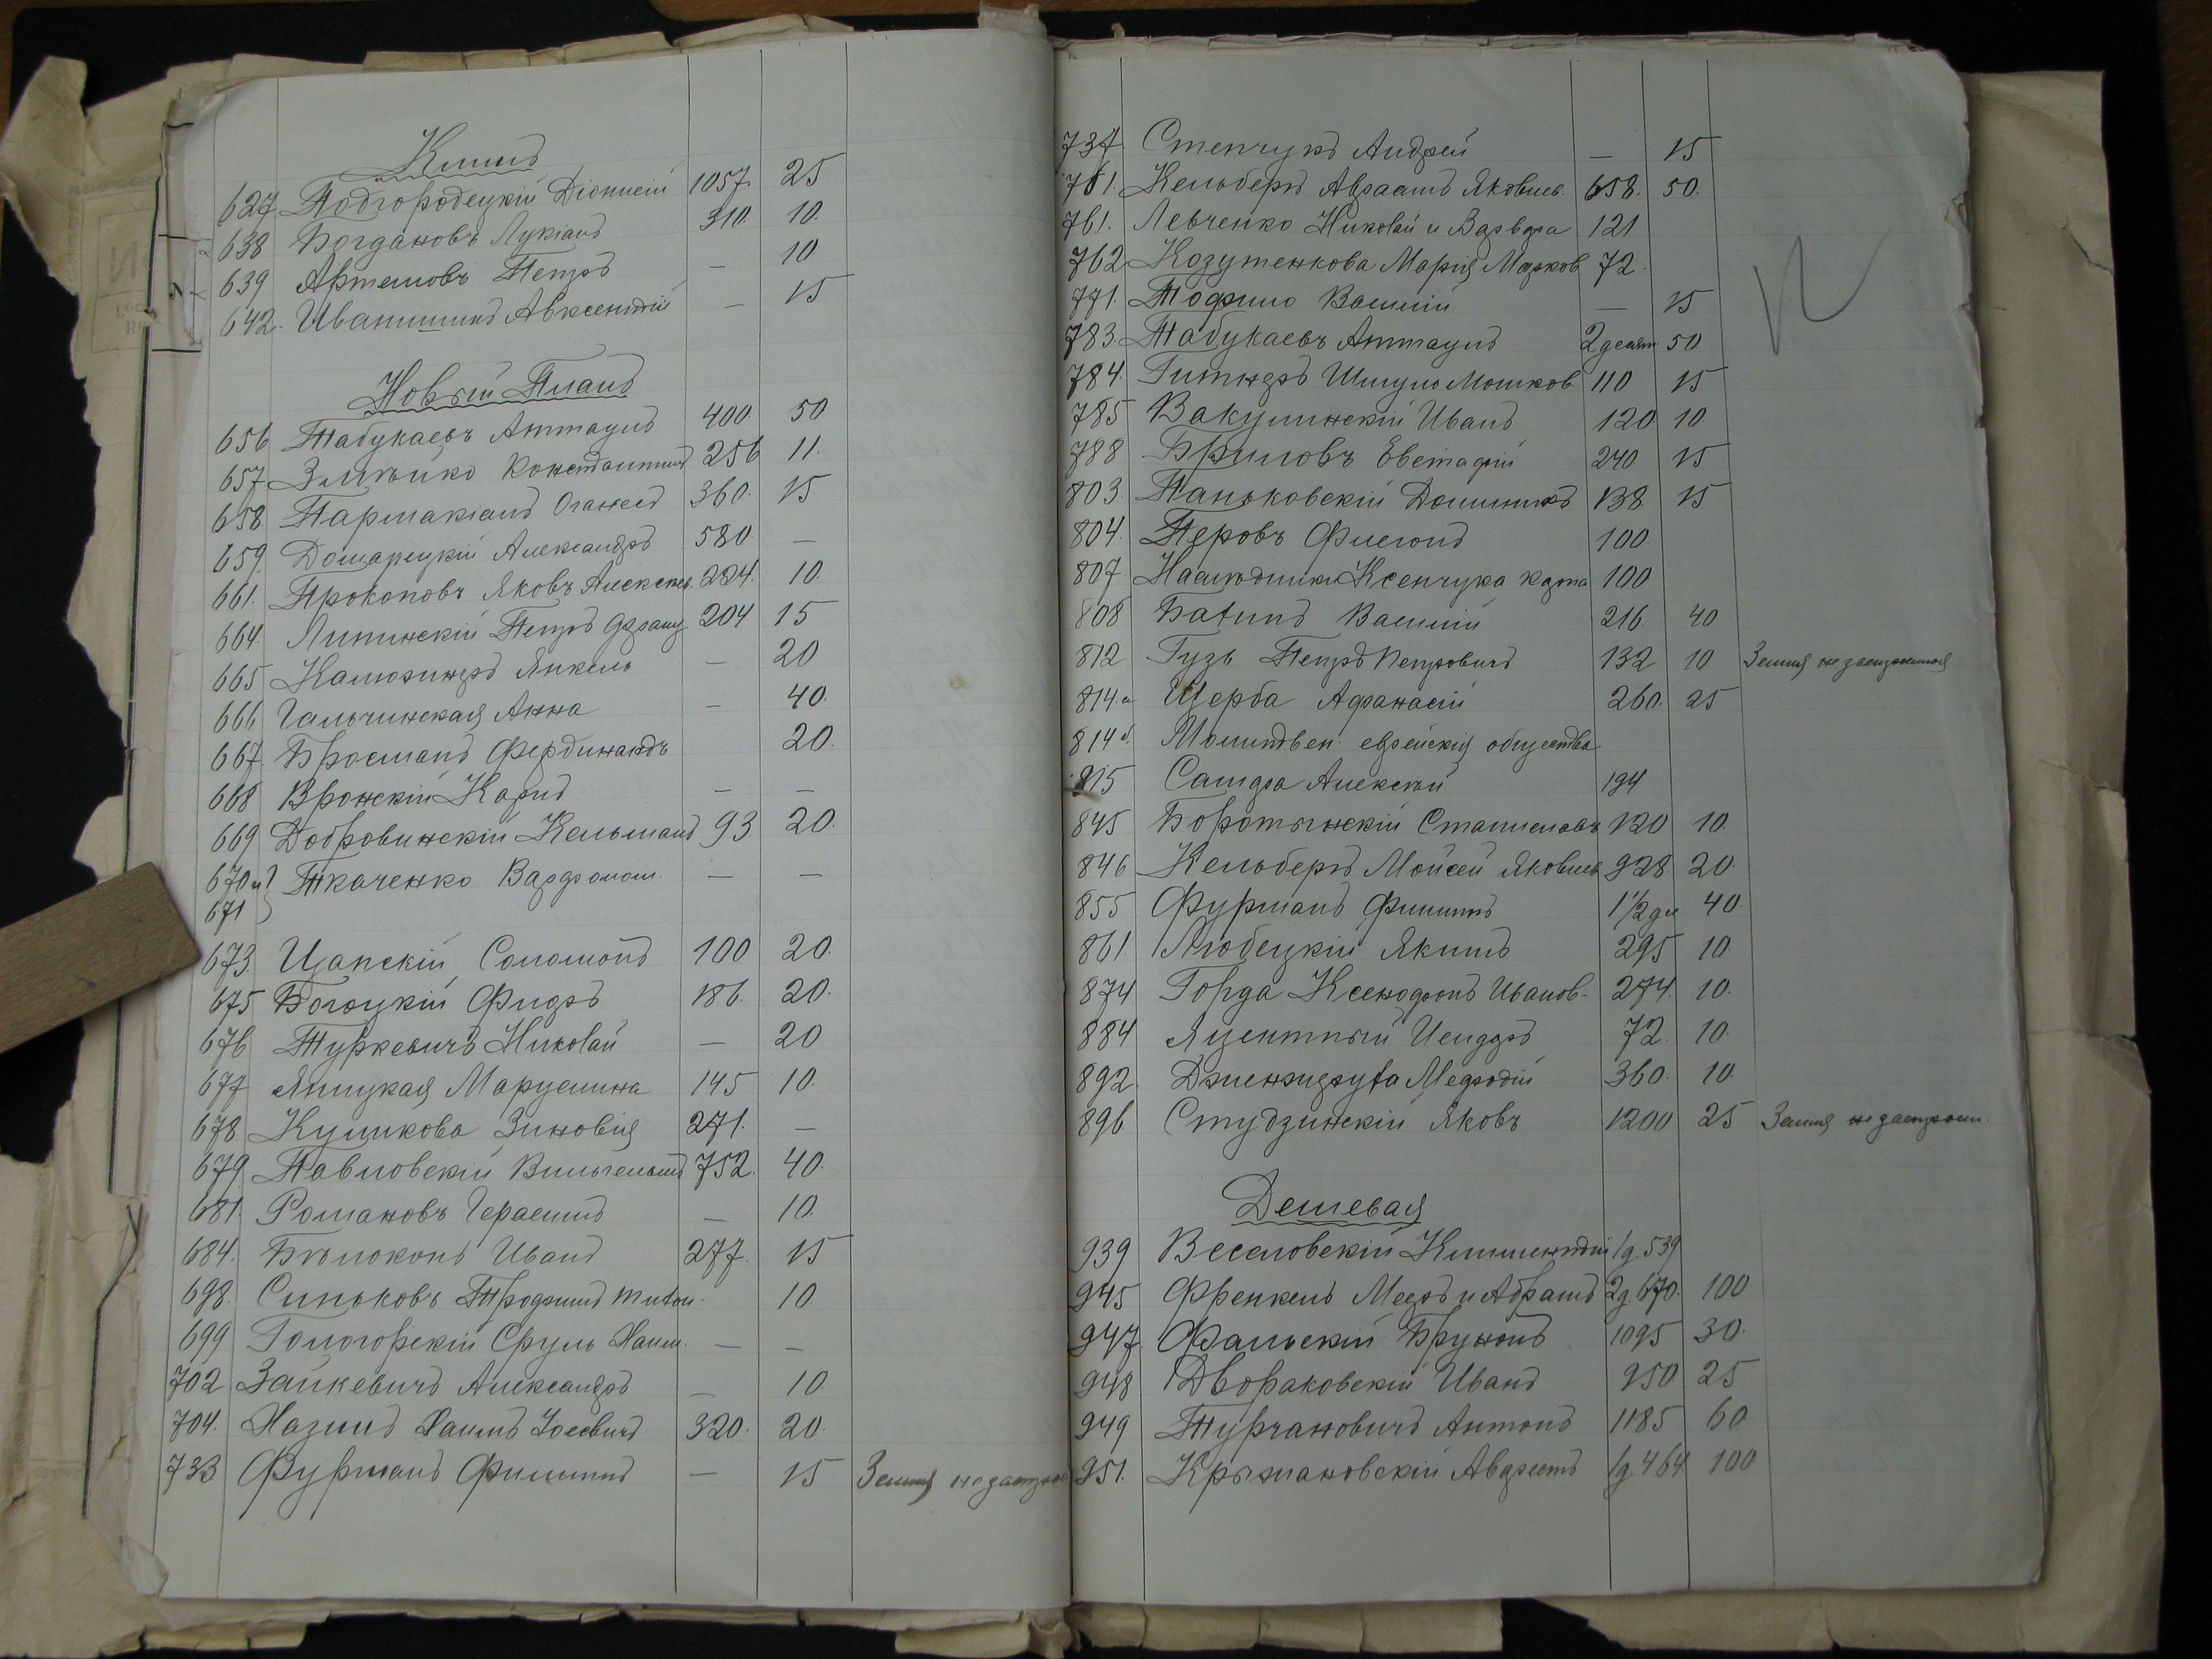 Клинъ
627 Подгородецкій Діонисій 1057 25
638 Богдановъ Лукіанъ 310 10.
639 Артемовъ Петръ — 10
642. Иванишинъ Авксентій — 15
Новый Планъ
656 Табукаевъ Аттаулъ 400 50
657 Змѣйко Константинъ 256 11.
658 Пармакіанъ Оганесъ 360. 15
659 Домарецкій Александръ 580 —
661. Прокоповъ Яковъ Алексѣев. 224. 10.
664. Липинскій Петръ Францъ 204 15
665 Калюжнеръ Янкель — 20
666 Гальчинская Анна — 40.
667 Бросманъ Фердинандъ 20.
668 Вронскій Карлъ — —
669 Добровинскій Кельманъ 93 20.
670 и Ткаченко Варфолом. — —
671
673. Цапскій Соломонъ 100 20.
675 Богоцкій Фидръ 186. 20.
676 Туркевичъ Николай — 20
677 Яницкая Марцелина 145 10.
678 Куликова Зиновія 271. —
679 Павловскій Вильгельмъ 752. 40.
681 Романовъ Герасимъ — 10.
684. Бѣлоконь Иванъ 277. 15
698. Синьковъ Трофимъ Титов. 10.
699 Гологорскій Сруль Хаим. — —
702 Зайкевичъ Александръ — 10.
704. Хазинъ Хаимъ Іосевичъ 320. 20.
733 Фурманъ Филиппъ — 15 Земля не застроен
737 Степчукъ Андрей — 15
761. Кельберъ Авраамъ Яковлев. 658. 50.
761. Левченко Николай и Варвара 121
762 Козутенкова Марія Марков 72.
771. Тофило Василій — 15
783. Табукаевъ Аттаулъ 2 десят. 50
784. Гитнеръ Шмуль Мошков. 110 15
785 Вакулинскій Иванъ 120 10.
788 Бриловъ Евстафій 240 15
803. Паньковскій Доминикъ 138 15
804. Перовъ Филонъ 100
807 Наслѣдники Ксенчука Карпа 100
808 Багинъ Василій 216 40
812 Гузь Петръ Петровичъ 132 10 Земля не застроенная
814.а Щерба Афанасій 260. 25
814 б. Молитвен. еврейскія общества
815 Самфра Алексѣй 194
845 Боротынскій Станиславъ 120 10.
846 Кельберъ Мойсей Яковлев 928 20.
855 Фурманъ Филиппъ 1 1/2 дес 40.
861. Любецкій Якимъ 295 10.
874 Горда Ксенофонъ Иванов. 274. 10.
884 Яцентный Исидоръ 72. 10.
892. Дженжеруха Мефодій 360. 10.
896. Студзинскій Яковъ 1200 25 Земля не застроен.
Дешевая
939 Веселовскій Климентій 1д. 539
945 Френкель Мееръ и Абрамъ 2д. 670. 100
947. Фальскій Брунонъ 1095 30.
948 Двораковскій Иванъ 950 25
949 Турчановичъ Антонъ 1185 60
951. Крыжановскій Авдреетъ 1д. 464 100